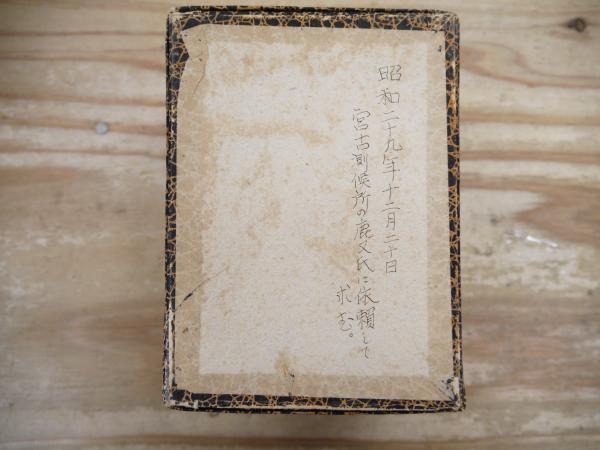 昭和二十九年十二月二十日
宮古測候所の鹿又氏に依頼して
求む。